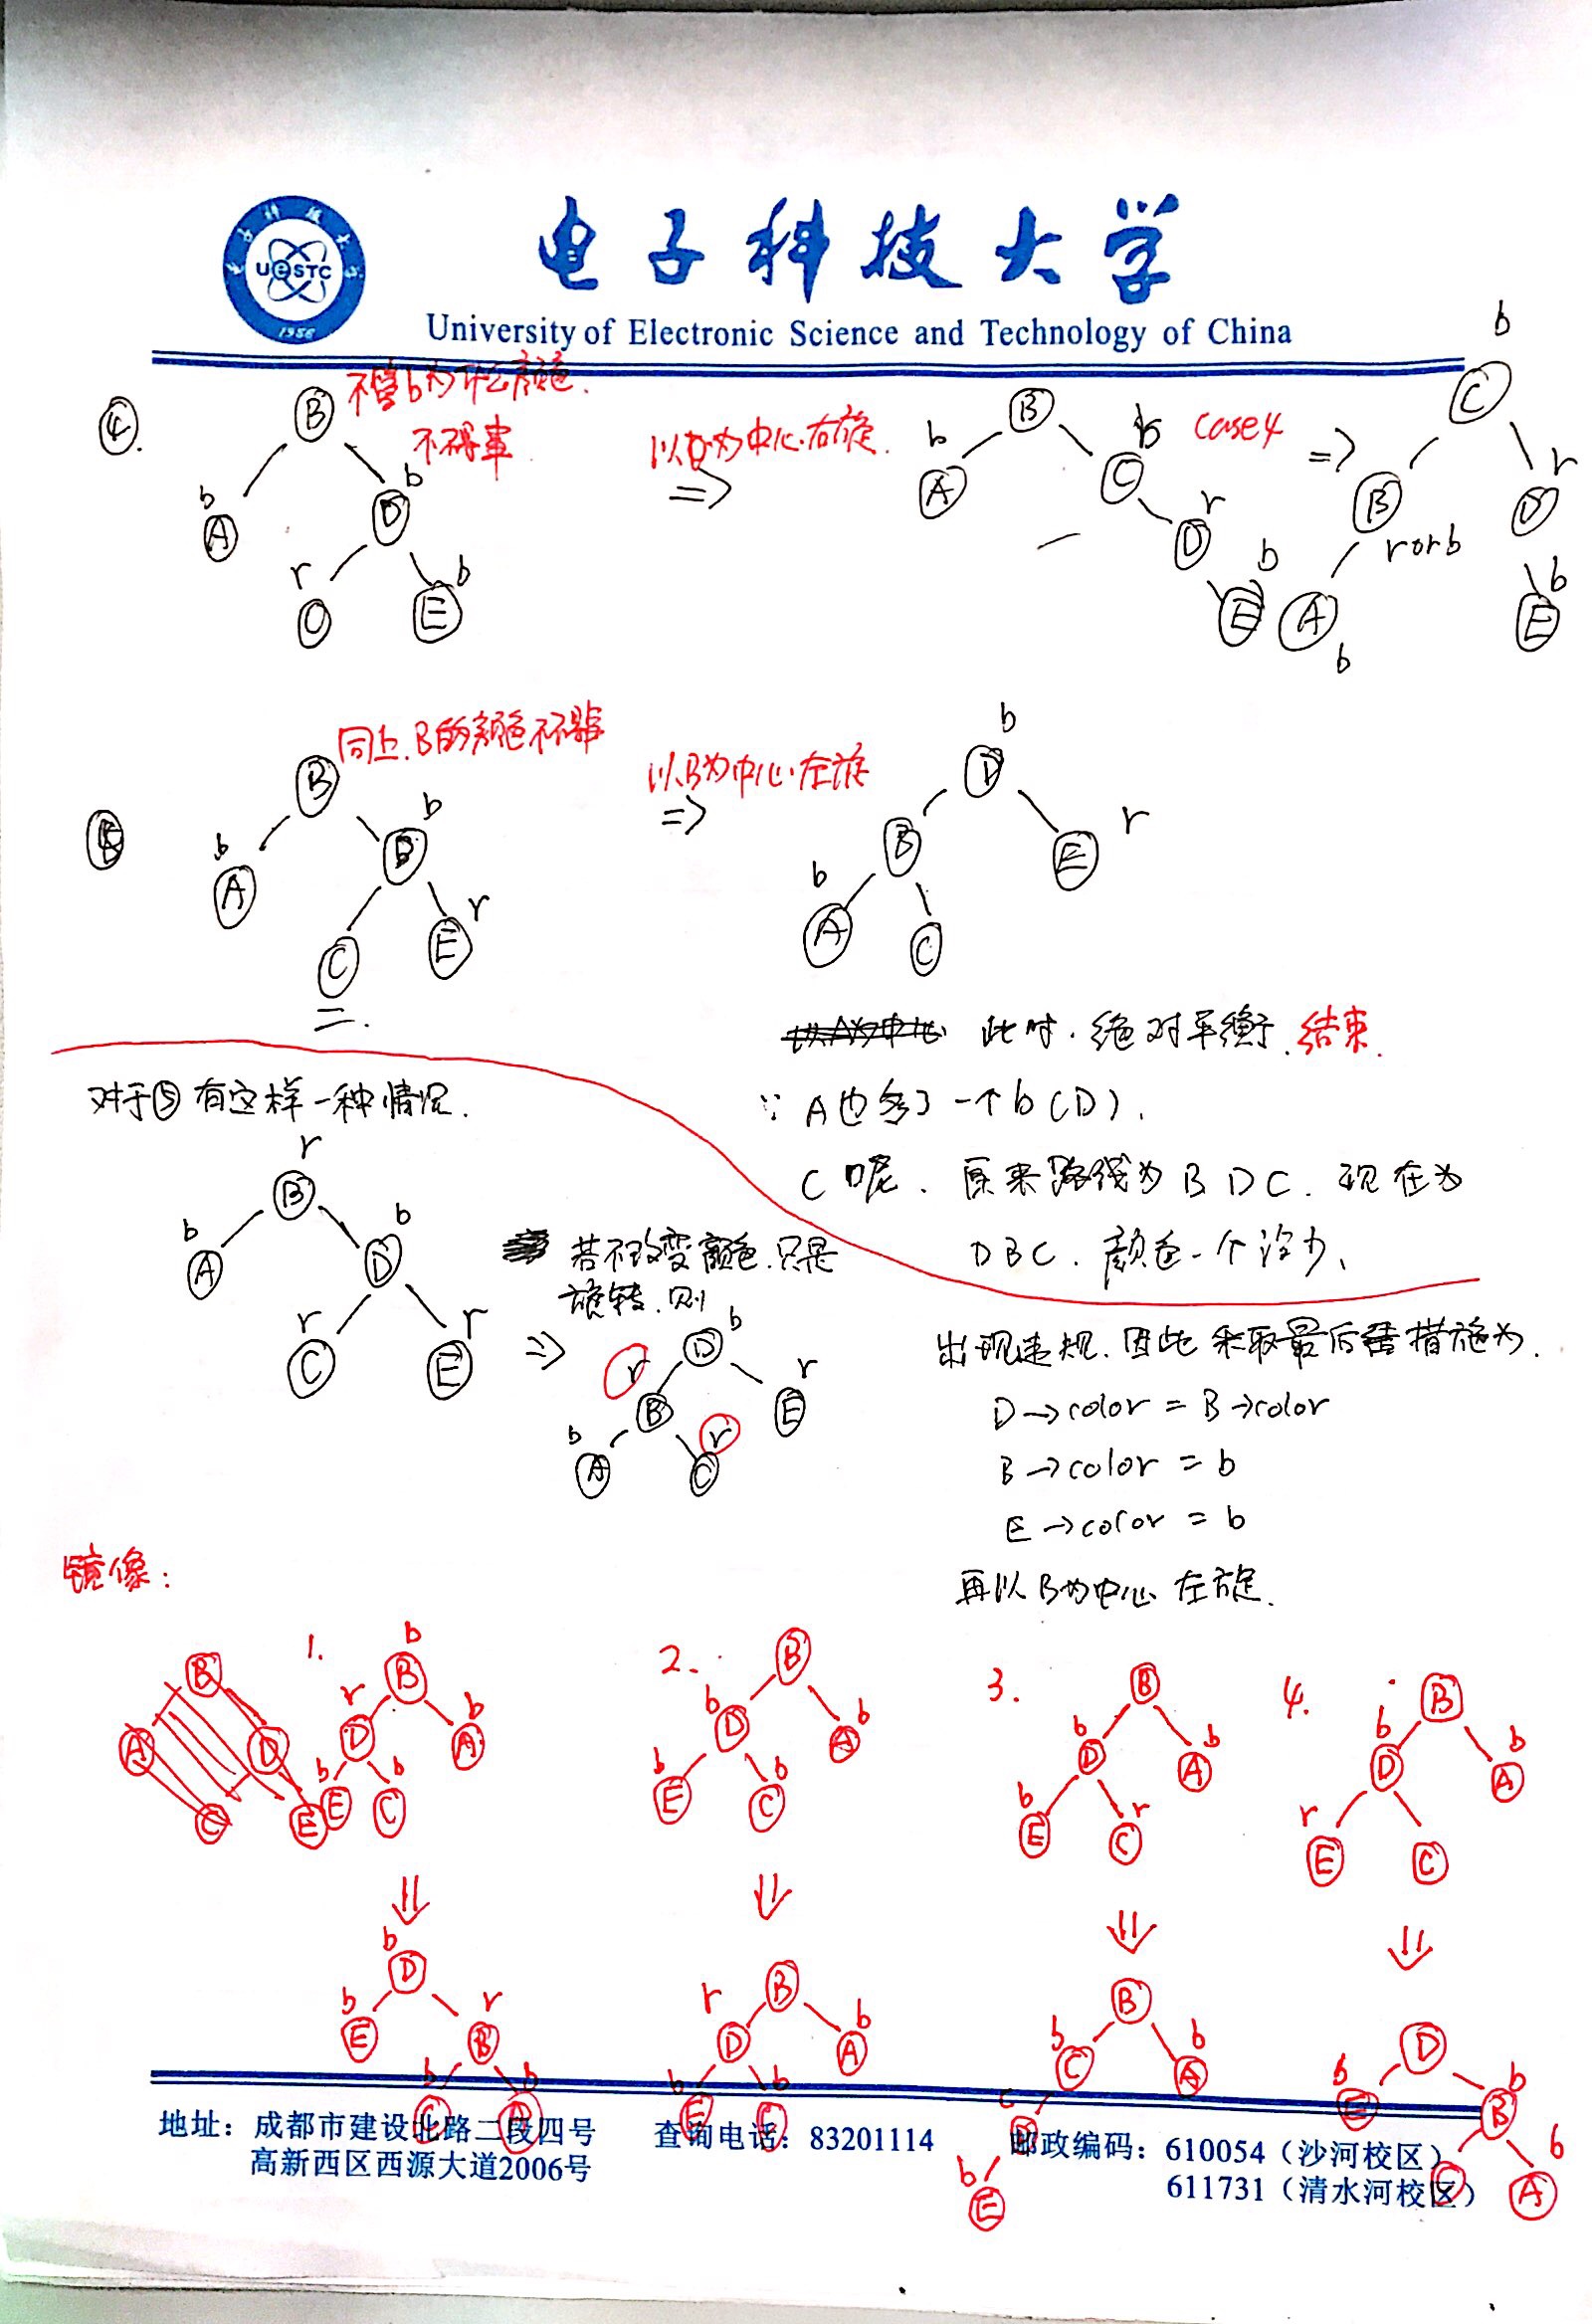 电子科技大学
UESTC
1956
University of Electronic Science and Technology of China
④.
B 不管b为什么颜色.
不碍事
b A
b D
r C
b E
以D为中心右旋.
=>
B
b A
b C
r D
b E
case4
=>
b C
B rorb
r D
A b
b E
⑤
B 同上.B的颜色不碍事
b A
b D
C
r E
以B为中心左旋
=>
b D
B
r E
b A
C
此时.绝对平衡.结束.
∵ A也多了一个b(D).
C呢.原来路线为BDC.现在为
DBC.颜色一个没少.
对于⑤有这样一种情况.
r B
b A
b D
r C
r E
若不改变颜色.只是
旋转.则
=>
b D
r B
r E
b A
r C
出现违规.因此采取最后措施为.
D→color = B→color
B→color = b
E→color = b
再以B为中心左旋.
镜像:
B
A D
C E
1.
b B
r D
b A
b E
b C
2.
B
b D
b A
b E
b C
3.
B
b D
b A
b E
r C
4.
B
b D
b A
r E
C
b D
b E
r B
b C
b A
B
r D
b A
b E
b C
B
b C
b A
D
b E
D
b E
b B
C
b A
地址：成都市建设北路二段四号 查询电话：83201114 邮政编码：610054（沙河校区）
高新西区西源大道2006号 611731（清水河校区）